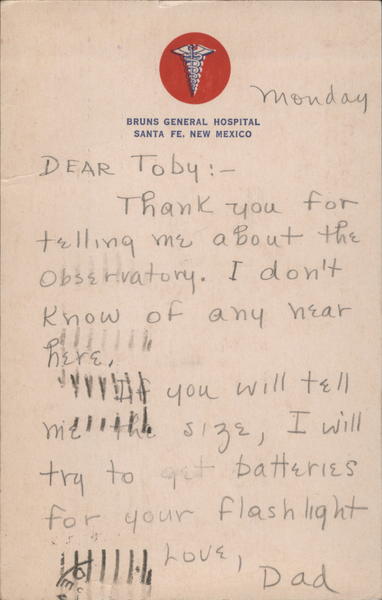 Monday
BRUNS GENERAL HOSPITAL
SANTA FE, NEW MEXICO
DEAR Toby:-
Thank you for
telling me about the
Observatory. I don't
know of any near
here.
If you will tell
me the size, I will
try to get batteries
for your flashlight
Love,
Dad